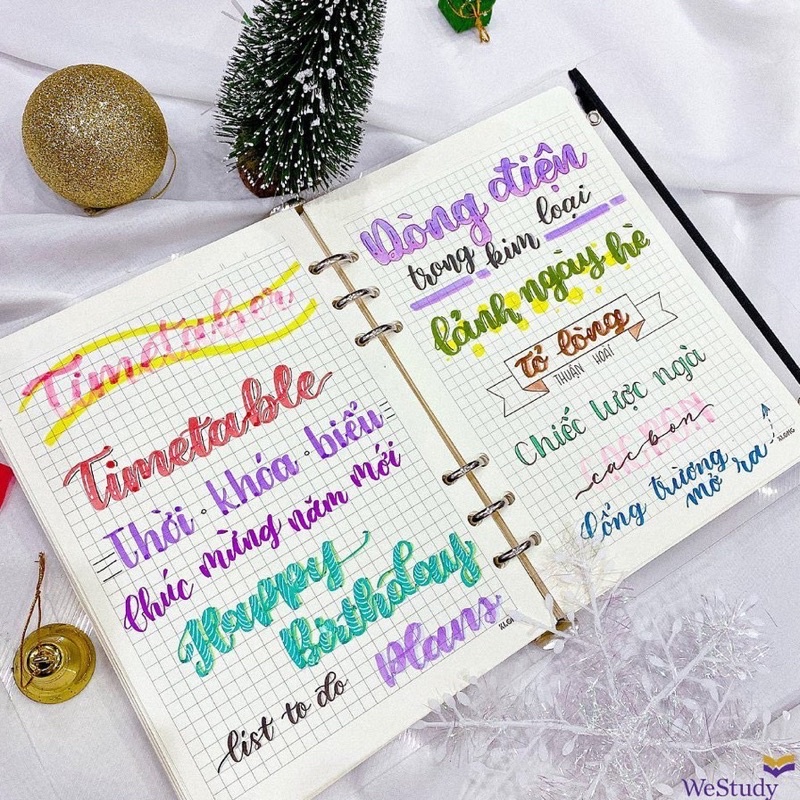 Timetaber
Timetable
Thời khóa biểu
Chúc mừng năm mới
Happy
Birthday
plans
list to do
Dòng điện
trong kim loại
cảnh ngày hè
tỏ lòng
THUẬN HOÀI
Chiếc lược ngà
CACBON
cacbon
Cổng trường
mở ra
WeStudy